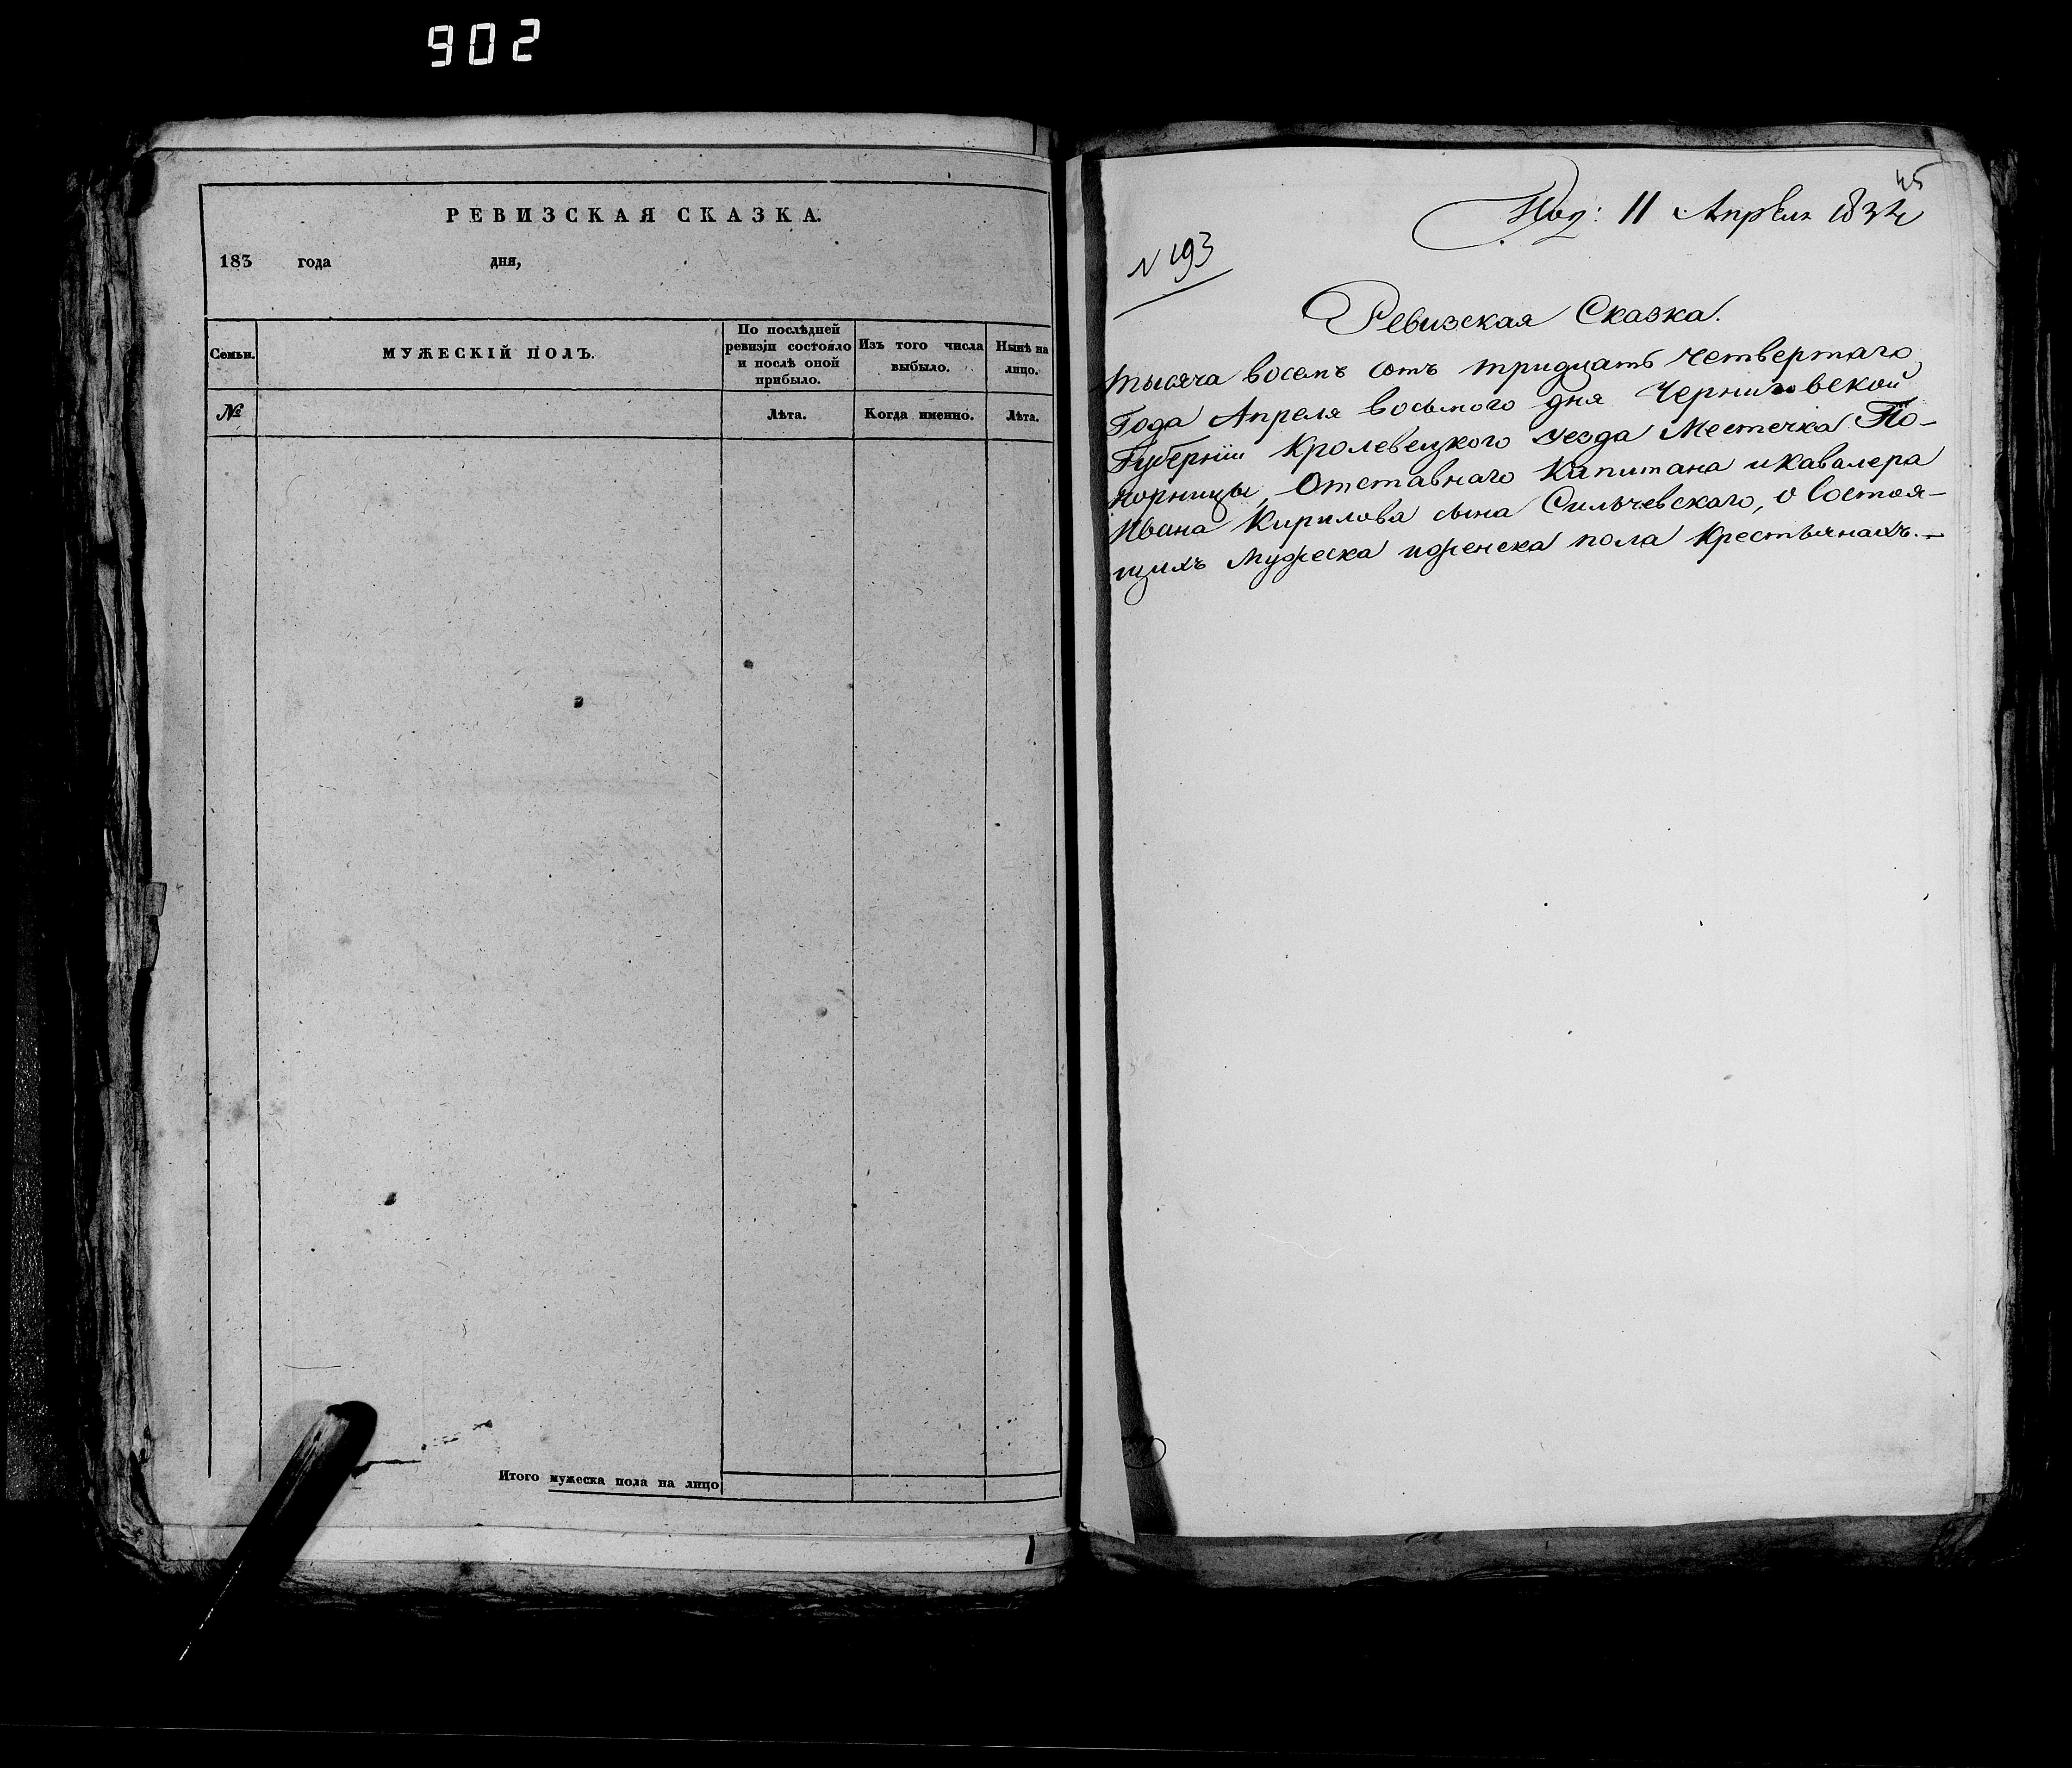 902
РЕВИЗСКАЯ СКАЗКА.
183 года дня,
Семьи.
МУЖЕСКІЙ ПОЛЪ.
По послѣдней
ревизіи состояло
и послѣ оной
прибыло.
Изъ того числа
выбыло.
Нынѣ на
лицо.
№
Лѣта.
Когда именно.
Лѣта.
Итого мужеска пола на лицо
45
Под: 11 Апрѣля 1834
N 193
Ревизская Сказка.
тысяча восемъ сотъ тридцать четвертаго
Года Апреля восьмого дня Черниговской
Губерніи Кролевецкого уезда Местечка По-
норницы, Отставнаго Капитана и кавалера
Ивана Кирилова сына Сильчевскаго, о Состоя-
щихъ Мужеска и женска пола Крестьянахъ.-